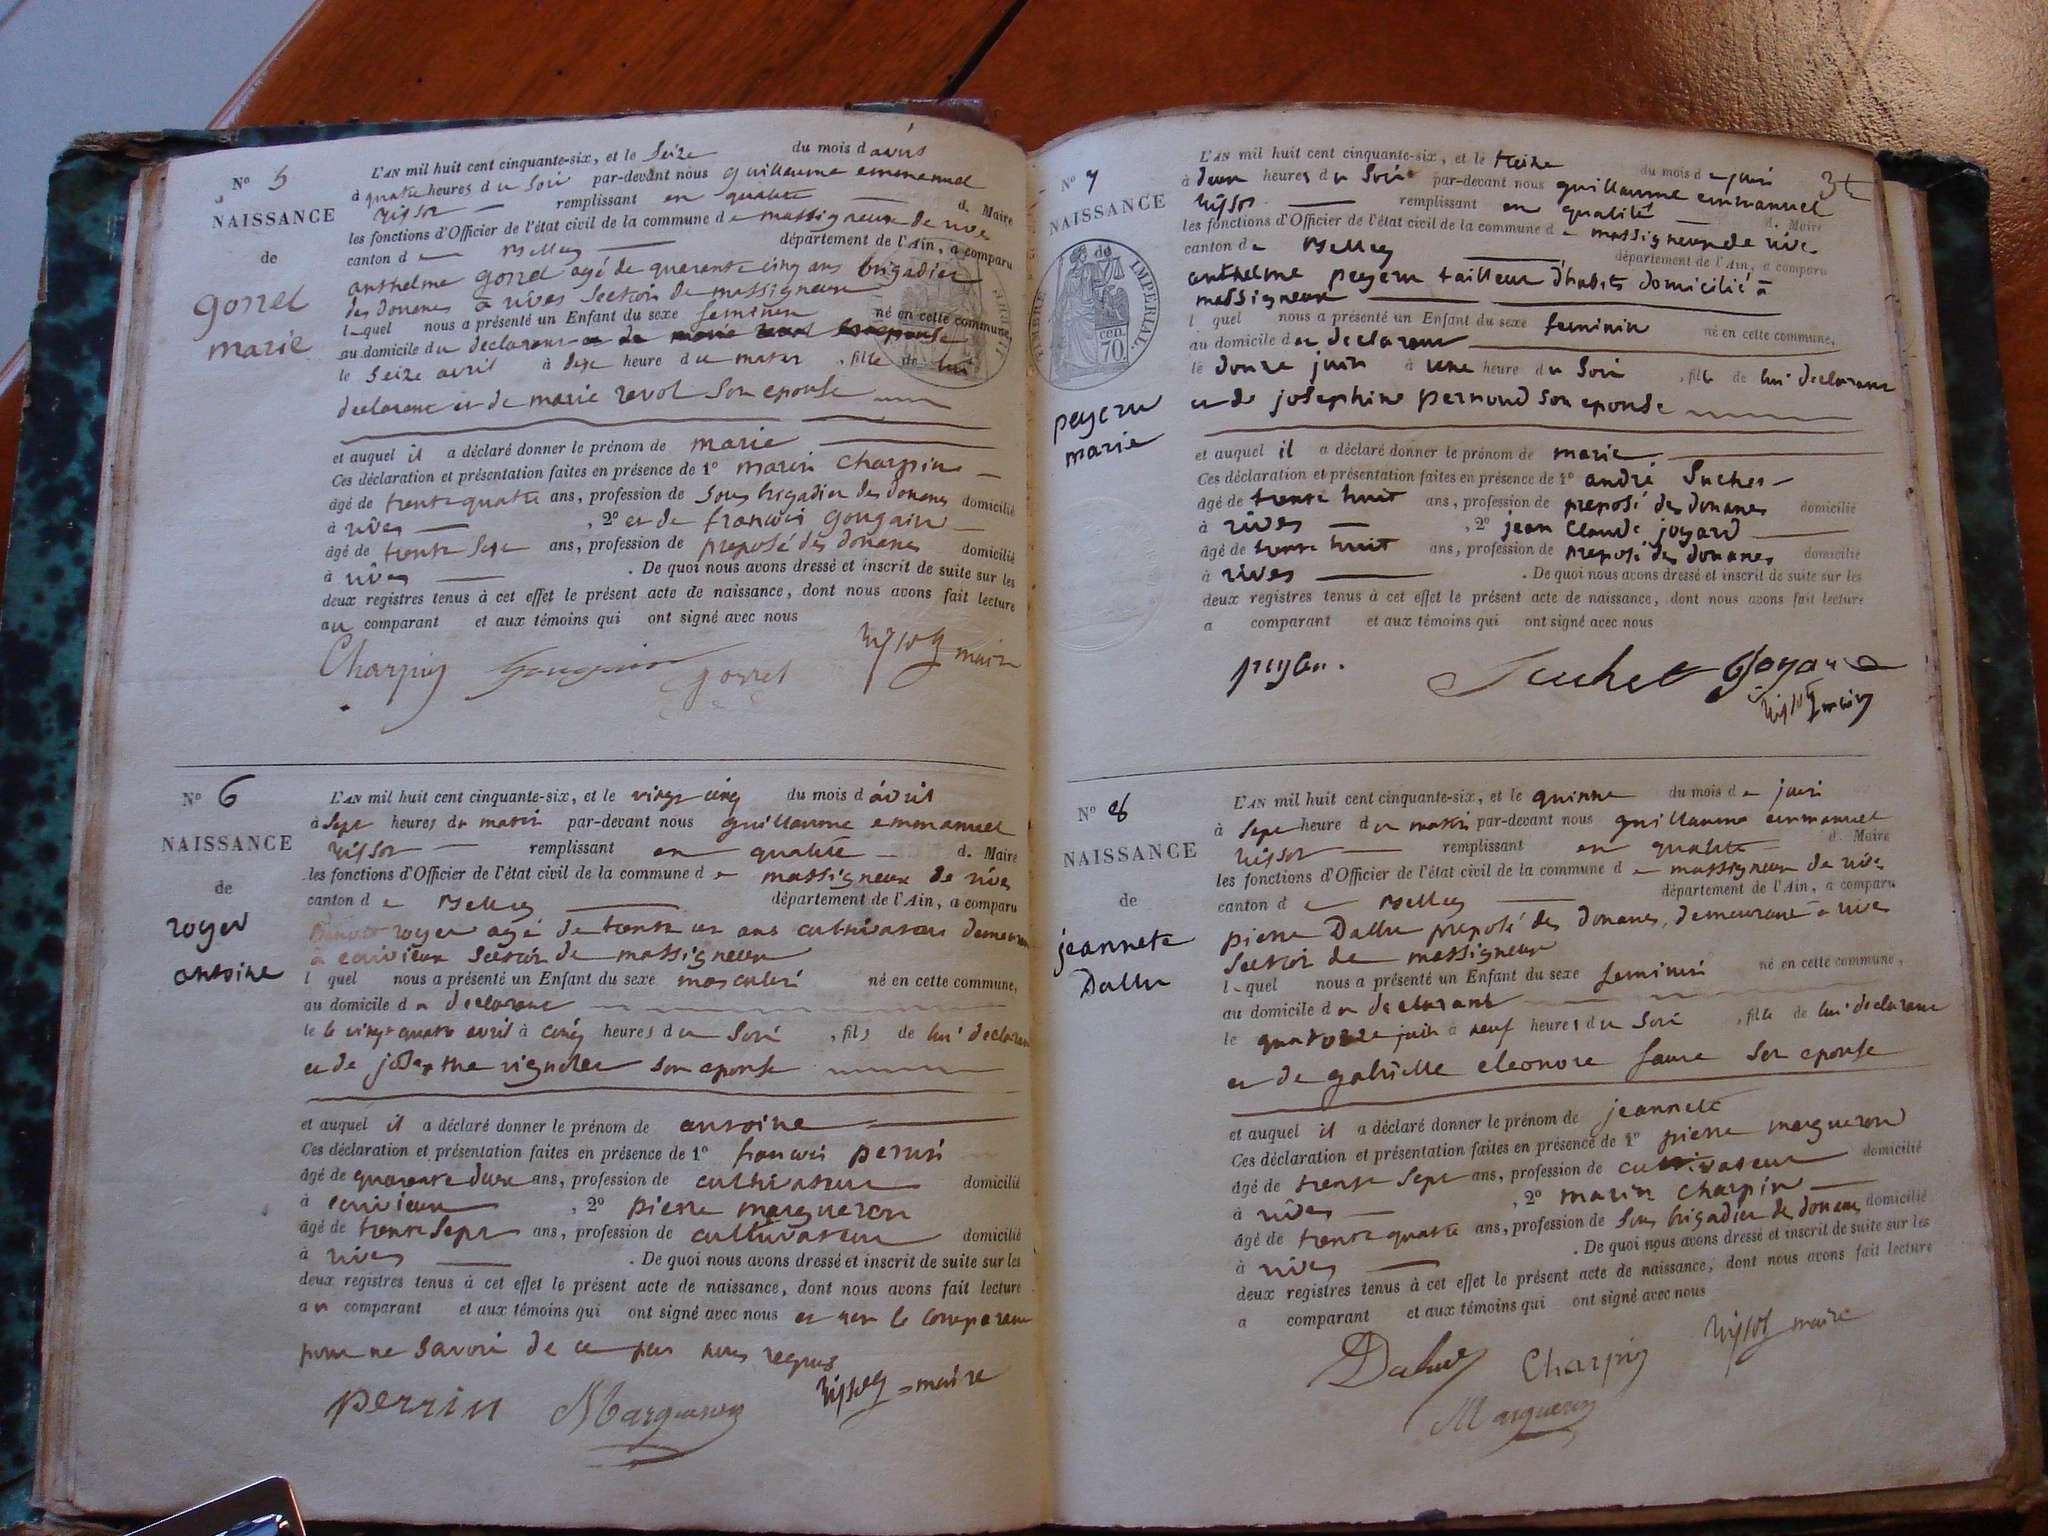 N° 5
NAISSANCE
de
gorrel
marie
L'AN mil huit cent cinquante-six, et le Seize du mois d avril
à quatre heures du Soir par-devant nous guillaume emmanuel
remplissant en qualité d. Maire
les fonctions d'Officier de l'état civil de la commune de massigneux de rive
canton de Belley département de l'Ain, a comparu
anthelme gorrel agé de quarante cinq ans brigadier
des douanes à rives Section de massigneux
l quel nous a présenté un Enfant du sexe feminin né en cette commune,
au domicile du declarant
le Seize avril à dix heure du matin, fille de lui
declarant et de marie revol Son epouse
et auquel il a déclaré donner le prénom de marie
Ces déclaration et présentation faites en présence de 1° marin Charpin
âgé de trente quatre ans, profession de Sous brigadier des douanes domicilié
à rives, 2° et de francois gougain
âgé de trente Sept ans, profession de preposé des douanes domicilié
à rives. De quoi nous avons dressé et inscrit de suite sur les
deux registres tenus à cet effet le présent acte de naissance, dont nous avons fait lecture
au comparant et aux témoins qui ont signé avec nous
Charpin gorrel maire
N° 6
NAISSANCE
de
royer
antoine
L'AN mil huit cent cinquante-six, et le vingt cinq du mois d avril
à Sept heures du matin par-devant nous guillaume emmanuel
remplissant en qualité d. Maire
les fonctions d'Officier de l'état civil de la commune de massigneux de rives
canton de Belley département de l'Ain, a comparu
royer agé de trente et ans cultivateur demeurant
à ecrivieux Section de massigneux
l quel nous a présenté un Enfant du sexe masculin né en cette commune,
au domicile du declarant
le vingt quatre avril à cinq heures du Soir, fils de lui declarant
et de son epouse
et auquel il a déclaré donner le prénom de antoine
Ces déclaration et présentation faites en présence de 1° francois perrin
âgé de quarante deux ans, profession de cultivateur domicilié
à ecrivieux, 2° pierre margueron
âgé de trente Sept ans, profession de cultivateur domicilié
à rives. De quoi nous avons dressé et inscrit de suite sur les
deux registres tenus à cet effet le présent acte de naissance, dont nous avons fait lecture
au comparant et aux témoins qui ont signé avec nous et non le comparant
pour ne Savoir de ce par nous requis
perrin Margueron maire
N° 7
NAISSANCE
TIMBRE IMPÉRIAL
70 cen.
peyeru
marie
L'AN mil huit cent cinquante-six, et le treize du mois de juin
à deux heures du Soir par-devant nous guillaume emmanuel
remplissant en qualité d. Maire
les fonctions d'Officier de l'état civil de la commune de massigneux de rive
canton de Belley département de l'Ain, a comparu
anthelme peyeru tailleur d'habits domicilié à
massigneux
l quel nous a présenté un Enfant du sexe feminin né en cette commune,
au domicile du declarant
le douze juin à une heure du Soir, fille de lui declarant
et de josephine pernoud son epouse
et auquel il a déclaré donner le prénom de marie
Ces déclaration et présentation faites en présence de 1° andré Suchet
âgé de trente huit ans, profession de preposé des douanes domicilié
à rives, 2° jean Claude joyard
âgé de trente huit ans, profession de preposé des douanes domicilié
à rives. De quoi nous avons dressé et inscrit de suite sur les
deux registres tenus à cet effet le présent acte de naissance, dont nous avons fait lecture
a comparant et aux témoins qui ont signé avec nous
Suchet Joyard
maire
N° 8
NAISSANCE
de
jeannete
Dallu
L'AN mil huit cent cinquante-six, et le quinze du mois de juin
à Sept heure du matin par-devant nous guillaume emmanuel
remplissant en qualité d. Maire
les fonctions d'Officier de l'état civil de la commune de massigneux de rives
canton de Belley département de l'Ain, a comparu
pierre Dallu preposé des douanes, demeurant à rives
Section de massigneux
l quel nous a présenté un Enfant du sexe feminin né en cette commune,
au domicile du declarant
le quatorze juin à neuf heures du Soir, fille de lui declarant
et de gabrielle eleonore faure Son epouse
et auquel il a déclaré donner le prénom de jeannete
Ces déclaration et présentation faites en présence de 1° pierre margueron
âgé de trente Sept ans, profession de cultivateur domicilié
à rives, 2° marin Charpin
âgé de trente quatre ans, profession de Sous brigadier des douanes domicilié
à rives. De quoi nous avons dressé et inscrit de suite sur les
deux registres tenus à cet effet le présent acte de naissance, dont nous avons fait lecture
a comparant et aux témoins qui ont signé avec nous
Charpin maire
Margueron